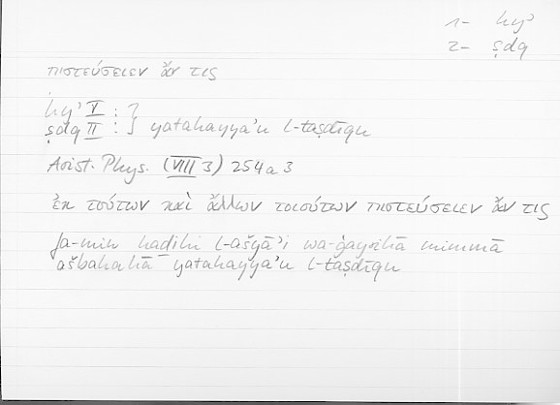 1- hyʾ
2- ṣdq
πιστεύσειεν ἄν τις
hyʾ V :
ṣdq II : } yatahayyaʾu l-taṣdīqu
Arist. Phys. (VIII 3) 254a3
ἐκ τούτων καὶ ἄλλων τοιούτων πιστεύσειεν ἄν τις
fa-min hāḏihi l-ašyāʾi wa-ġayrihā mimmā
ašbahahā yatahayyaʾu l-taṣdīqu